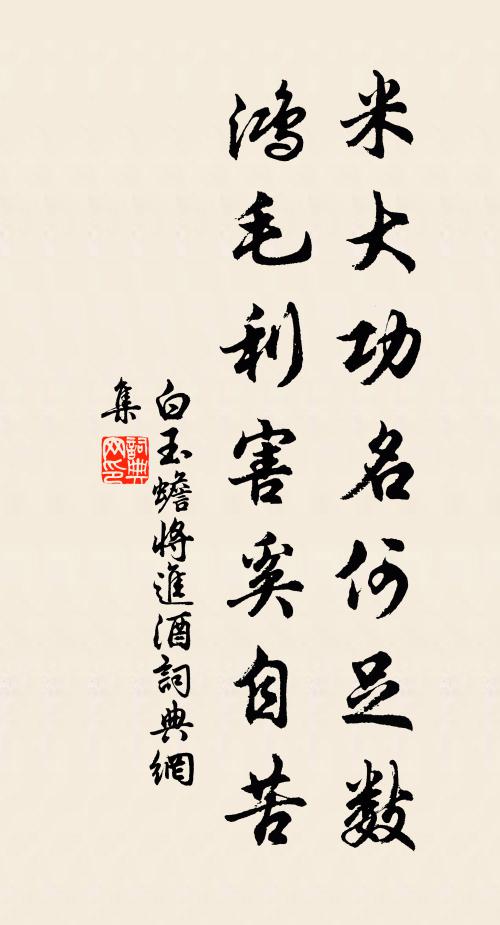 米大功名何足数
鸿毛利害奚自苦
白玉蟾將進酒詞典網
集
詞典
网印